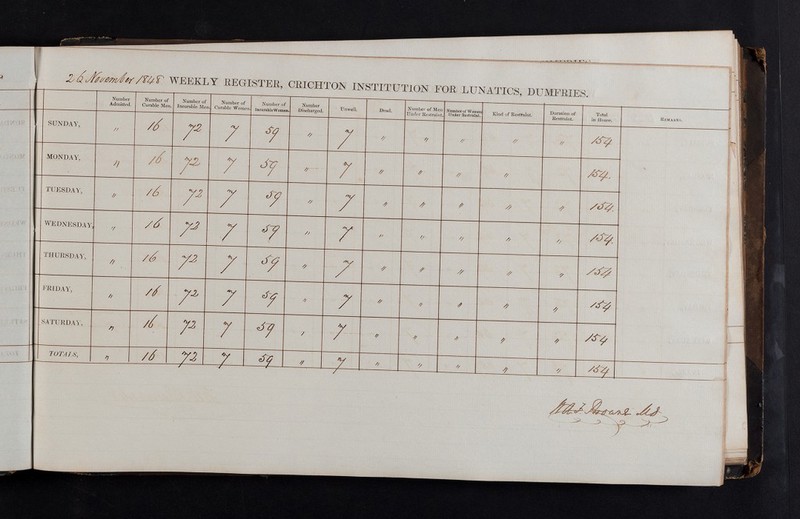 26 November 1848 WEEKLY REGISTER, CRICHTON INSTITUTION FOR LUNATICS, DUMFRIES.
Number Admitted. Number of Curable Men. Number of Incurable Men. Number of Curable Women. Number of Incurable Women. Number Discharged. Unwell. Dead. Number of Men Under Restraint. Number of Women Under Restraint. Kind of Restraint. Duration of Restraint. Total in House. REMARKS.
SUNDAY, " 16 72 7 59 " 7 " " " " " 154
MONDAY, " 16 72 7 59 " 7 " " " " 154
TUESDAY, " 16 72 7 59 " 7 " " " " " 154
WEDNESDAY, " 16 72 7 59 " 7 " " " " " 154
THURSDAY, " 16 72 7 59 " 7 " " " " " 154
FRIDAY, " 16 72 7 59 " 7 " " " " " 154
SATURDAY, " 16 72 7 59 " 7 " " " " " 154
TOTALS, " 16 72 7 59 " 7 " " " " " 154
W A F Browne Md